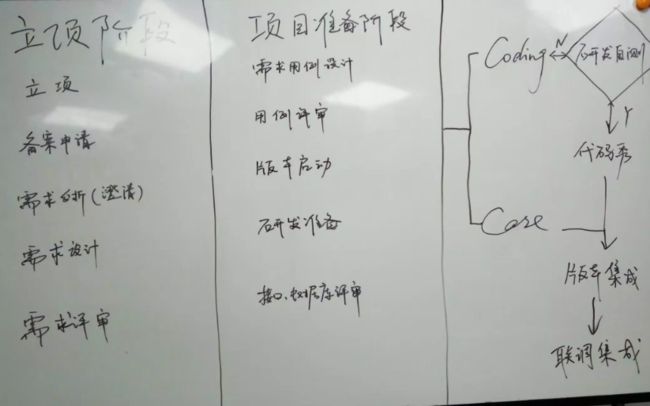 立项阶段
立项
备案申请
需求分析(澄清)
需求设计
需求评审
项目准备阶段
需求用例设计
用例评审
版本启动
研发准备
接口、数据库评审
Coding
N
研发自测
Y
代码秀
Case
版本集成
联调集成